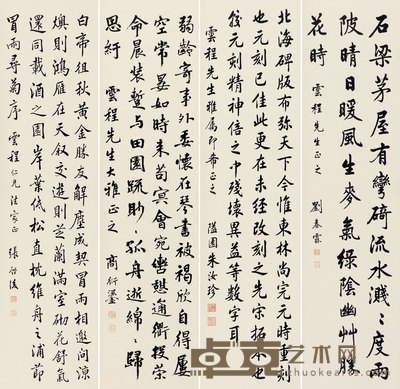 石梁茅屋有彎碕流水濺濺度兩
陂晴日暖風生麥氣綠陰幽草勝
花時 雲程先生正之 劉春霖
北海碑版布弥天下今惟東林尚完元時重刻
也元刻已佳此更在未經改刻之先宋拓本也
元刻精神倍之中殘壞異益等數字耳
雲程先生雅屬即希正之 隘園朱汝珍
弱齡寄事外委懷在琴書被褐欣自得屢
空常晏如時来苟冥會宛轡憩通衢投策
命晨裝暫與田園疏眇眇孤舟逝綿綿歸
思紆 雲程先生大雅正之 商衍鎏
白帝徂秋黃金勝友解塵成契冒雨相邀間涼
燠則鴻雁在天叙交遊則芝蘭滿室砌花舒氣
還同載酒之園岸葉低松直枕維舟之浦節
冒雨尋菊序 雲程仁兄法家正 張啟後
卓克艺术网